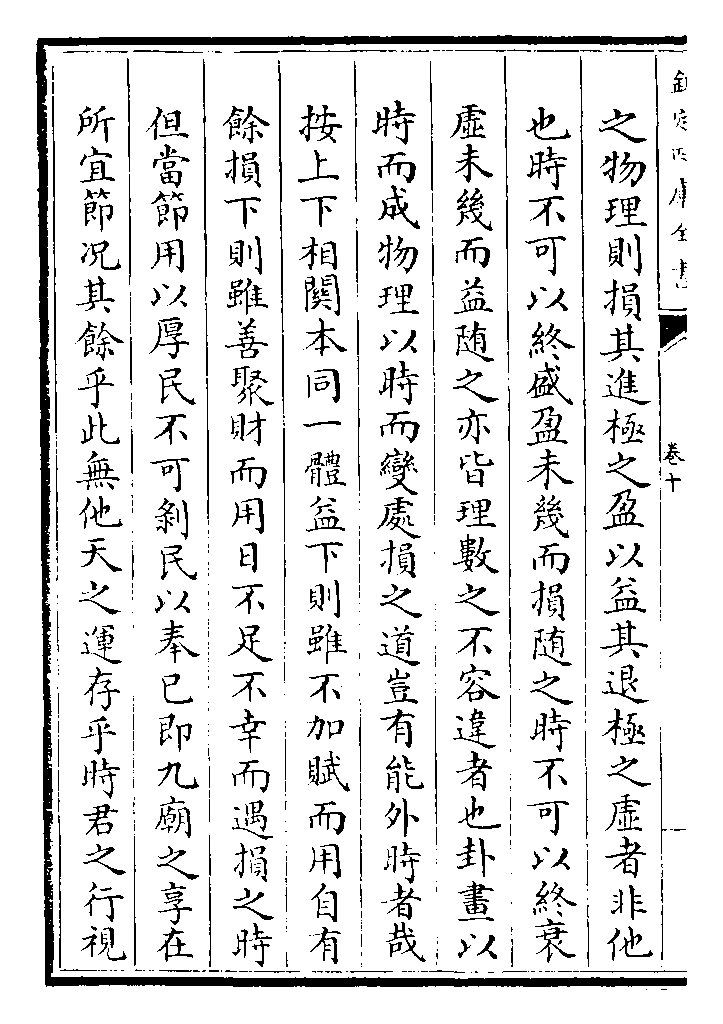 欽定四庫全書
卷十
之物理則損其進極之盈以益其退極之虛者非他
也時不可以終盛盈未幾而損随之時不可以終衰
虛未幾而益随之亦皆理數之不容違者也卦畫以
時而成物理以時而變處損之道豈有能外時者哉
按上下相關本同一體益下則雖不加賦而用自有
餘損下則雖善聚財而用日不足不幸而遇損之時
但當節用以厚民不可剝民以奉已即九廟之享在
所宜節况其餘乎此無他天之運存乎時君之行視